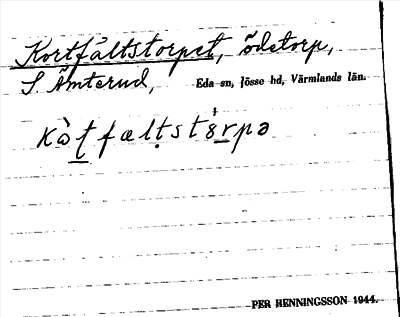 Kortfältstorpet, ödetorp,
S Ämterud, Eda sn, Jösse hd, Värmlands län.
kòt̲fælṭstɵ́r̲pə
PER HENNINGSSON 1944.